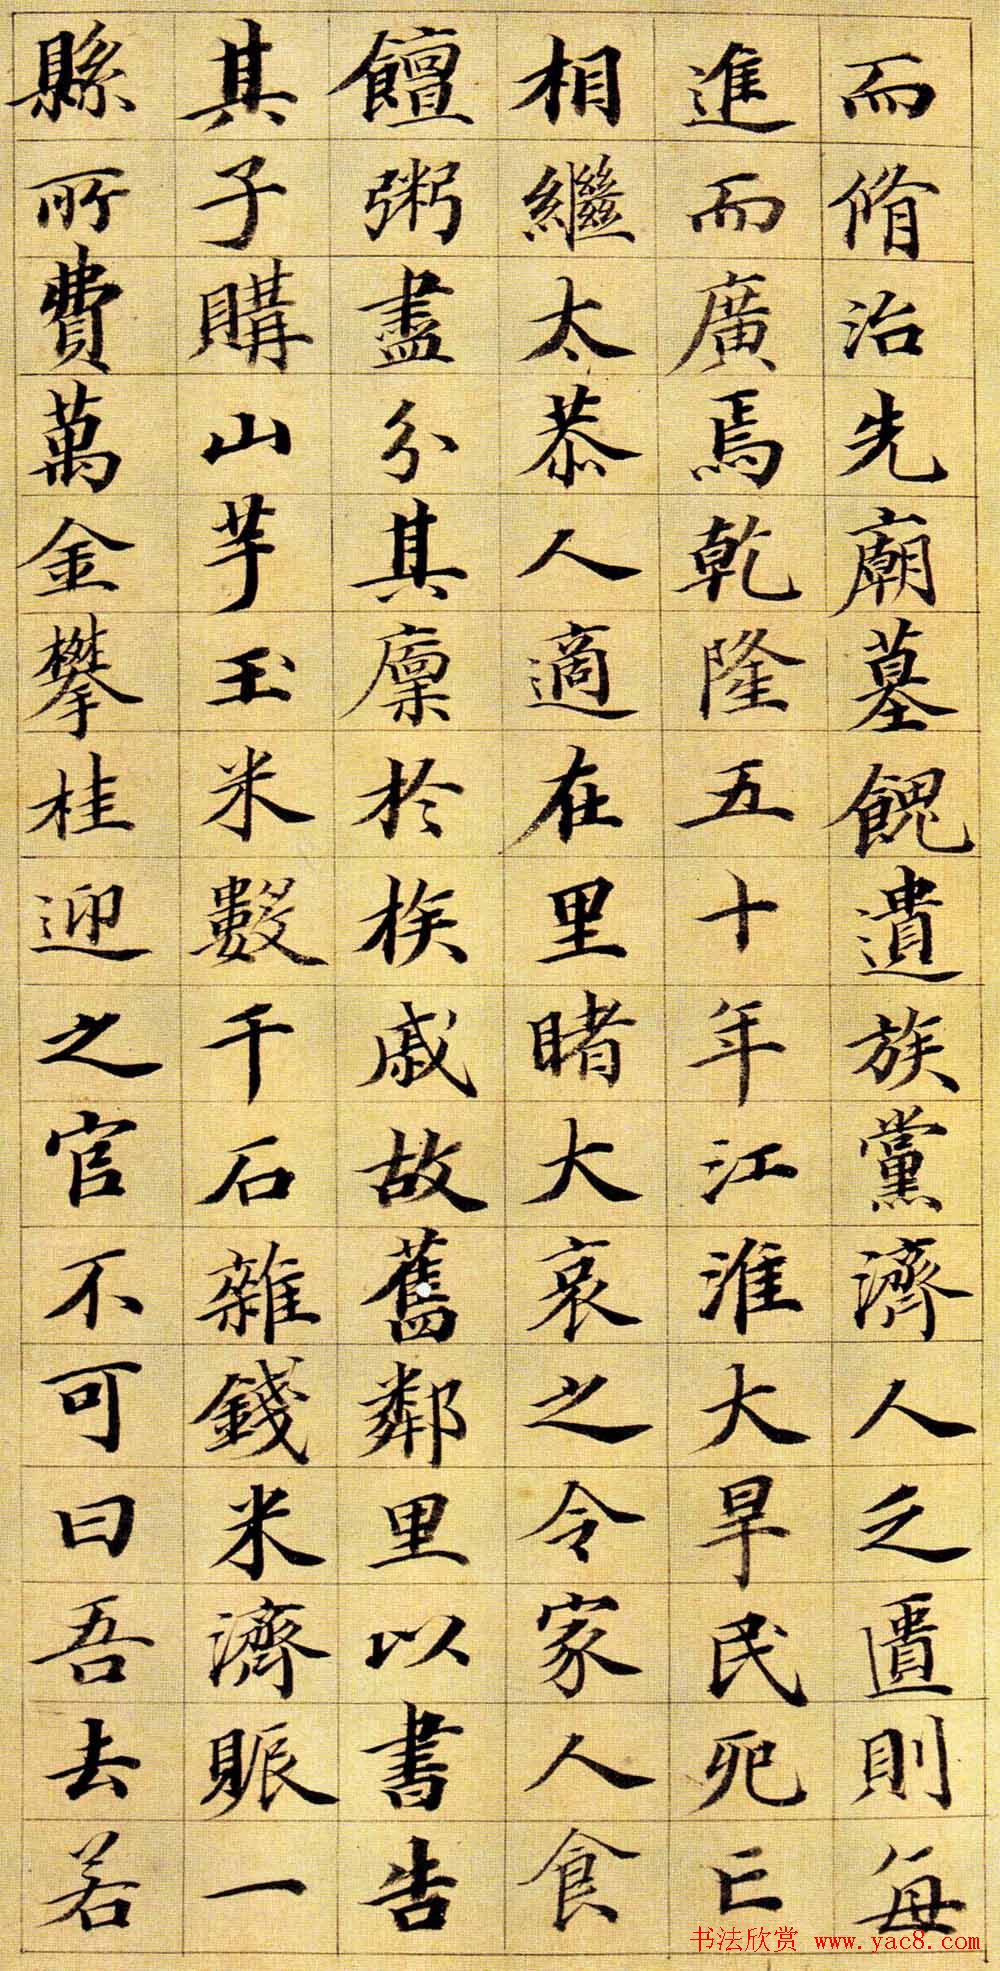 而脩治先廟墓餽遺族黨濟人之匱則每
進而廣焉乾隆五十年江淮大旱民死亡
相繼太恭人適在里睹大哀之令家人食
饘粥盡分其廩於族戚故舊鄰里以書告
其子購山芋玉米數千石雜錢米濟賑一
縣所費萬金攀桂迎之官不可曰吾去若
书法欣赏 www.yac8.com